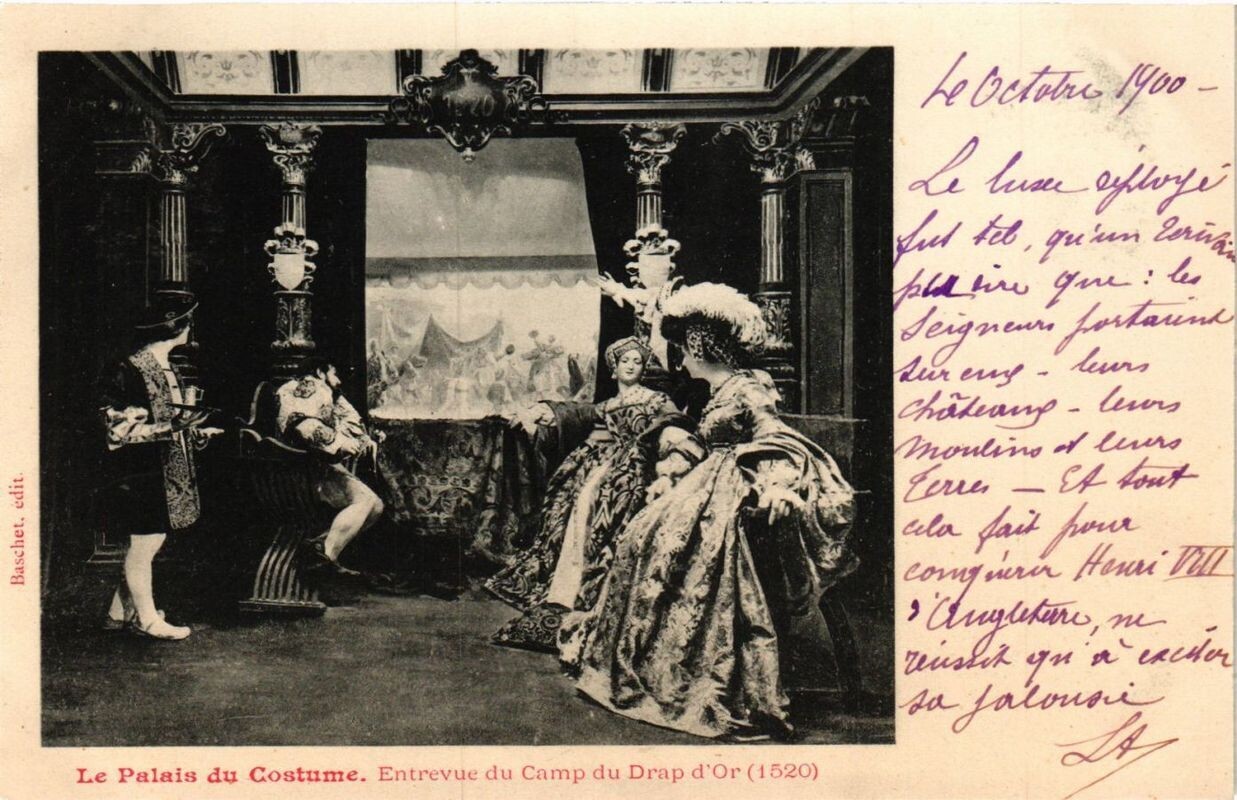 Le Octobre 1900 -
Le luxe déployé
fut tel, qu'un Ecrivain
pu dire que : les
Seigneurs portaient
sur eux - leurs
châteaux - leurs
Moulins et leurs
Terres - Et tout
cela fait pour
conquérir Henri VIII
d'Angleterre, ne
réussit qu'à exciter
sa jalousie
LA
Baschet, édit.
Le Palais du Costume. Entrevue du Camp du Drap d'Or (1520)